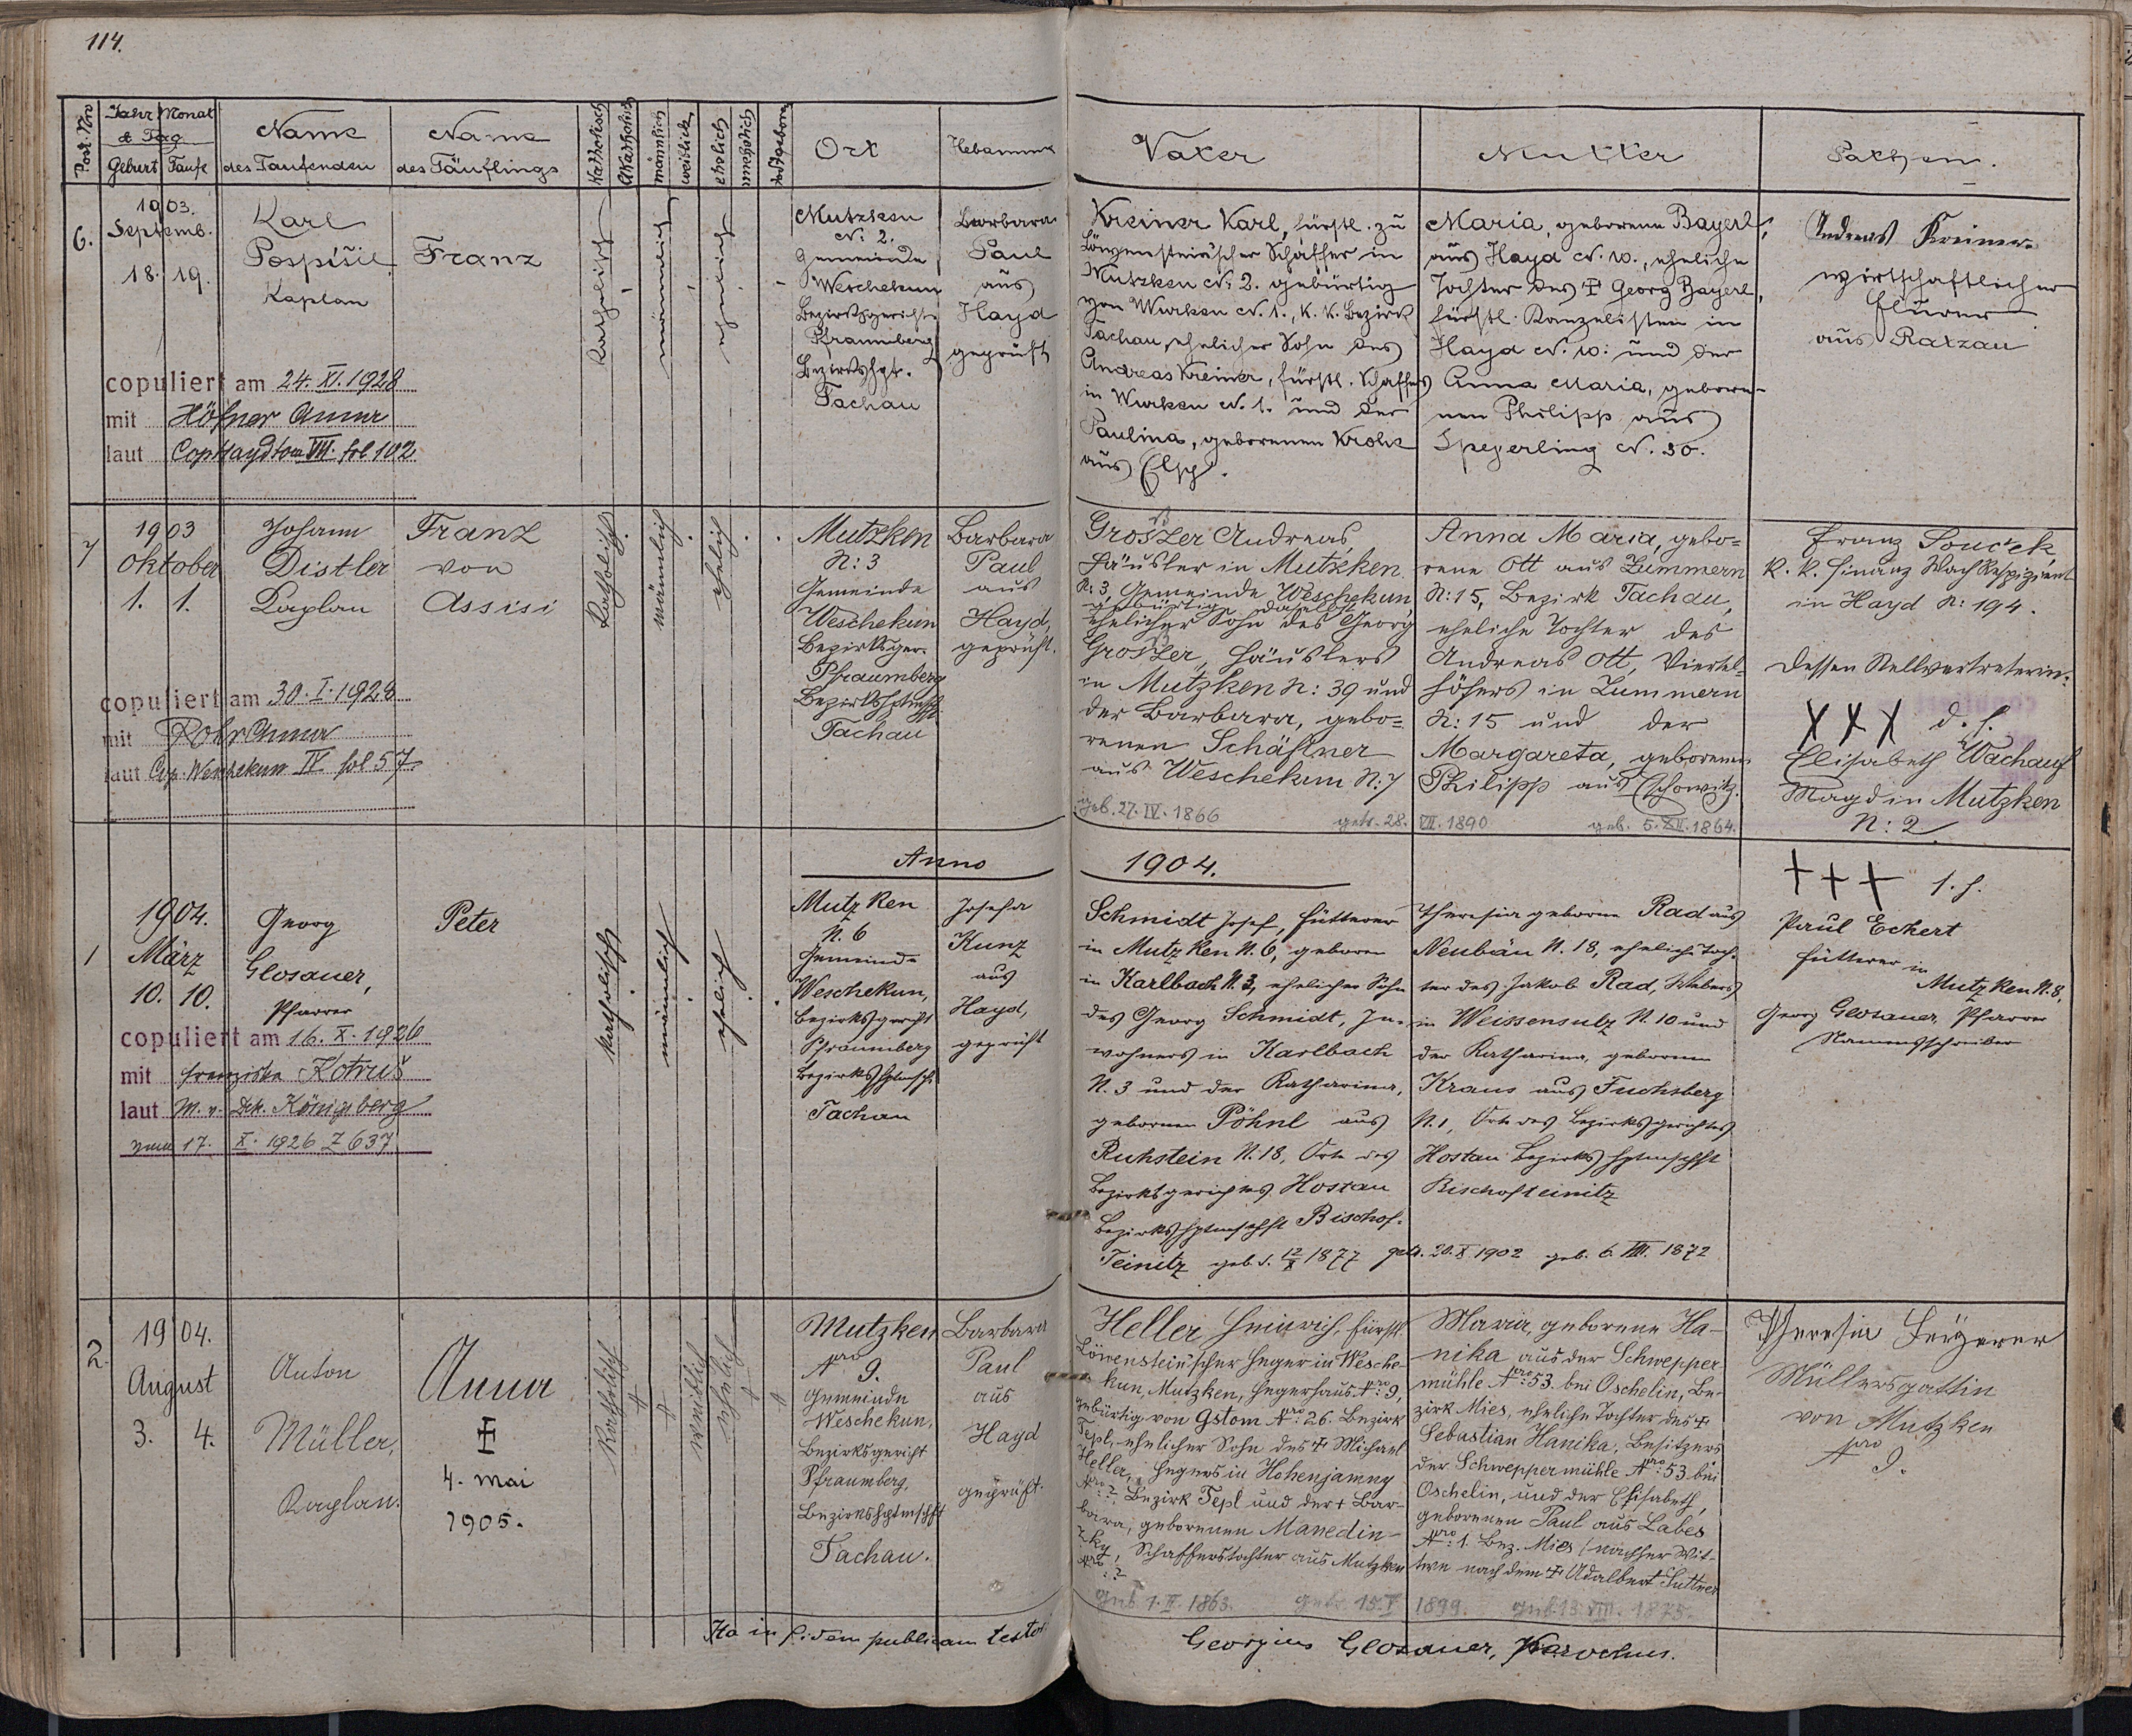 114.
Post. Nro
Jahr Monat
& Tag
Geburt Taufe
Name
des Taufenden
Name
des Täuflings
Katholisch
Akatholich
männlich
weiblich
ehelich
unehelich
todtgeboren
Ort
Hebamme
Vater
Mutter
Pathen.
6.
1903.
Septemb.
18. 19.
Karl
Pospíšil
Kaplan
Franz
katholisch
männlich
ehelich
Mutzken
N. 2.
Gemeinde
Weschekun
Bezirksgericht
Pfraumberg
Bezirkshpt.
Tachau
Barbara
Paul
aus
Hayd
geprüft
Kreiner Karl, fürstl. zu
Löwenstein'scher Schaffer in
Mutzken N: 2. gebürtig
von Wurken N. 1., K. K. Bezirk
Tachau, ehelicher Sohn des
Andreas Kreiner, fürstl. Schaffers
in Wurken N. 1. und der
Paulina, geborenen
aus
Maria, geborene Bayerl,
aus Hayd N. 10., eheliche
Tochter des † Georg Bayerl,
fürstl. Kanzelisten in
Hayd N. 10: und der
Anna Maria, gebore-
nen Philipp aus
Speyerling N. 30.
Andreas Kreiner
wirtschaftlicher
aus Ratzau
copuliert am 24. XI. 1928
mit Höfner Anna
laut Cop Hayd tom VII. fol 102
7
1903
Oktober
1. 1.
Johann
Distler
Kaplan
Franz
von
Assisi
katholisch
männlich
ehelich
Mutzken
N: 3
Gemeinde
Weschekun
Bezirksger.
Pfraumberg
Bezirkshptmsch
Tachau
Barbara
Paul
aus
Hayd,
geprüft.
Groszer Andreas,
Häusler in Mutzken
N: 3, Gemeinde Weschekun,
gebürtig daselbst
ehelicher Sohn des Georg
Groszer, Häuslers
in Mutzken N: 39 und
der Barbara, gebo=
renen Schäffner
aus Weschekun N: 7
geb. 27. IV. 1866
Anna Maria, gebo=
rene Ott aus Zummern
N: 15, Bezirk Tachau,
eheliche Tochter des
Andreas Ott, Viertel-
höfers in Zummern
N: 15 und der
Margareta, geborenen
Philipp aus Eschowitz.
getr. 28. VII. 1890 geb. 5. XII. 1864.
Franz Souček
K. K. Finanz Wach Respizient
in Hayd N: 194.
dessen Stellvertreterin:
X X X d. h.
Elisabeth Wachauf
Magd in Mutzken
N: 2
copuliert am 30. I. 1928
mit Rohr Anna
laut Cop. Weschekun IV fol 57
Anno 1904.
1
1904.
März
10. 10.
Georg
Glosauer,
Pfarrer
Peter
katholisch
männlich
ehelich
Mutzken
N. 6
Gemeinde
Weschekun,
Bezirksgericht
Pfraumberg
Bezirkshptmsch.
Tachau
Josefa
Kunz
aus
Hayd,
geprüft
Schmidt Josef, Fütterer
in Mutzken N. 6, geboren
in Karlbach N. 3, ehelicher Sohn
des Georg Schmidt, In-
wohners in Karlbach
N. 3 und der Katharina,
gebornen Pöhnl aus
Ruhstein N. 18, Orte des
Bezirksgerichtes Hostau
Bezirkshptmschft Bischof-
Teinitz geb. d. 12/X 1877 getr. 20. X 1902 geb. 6. VIII. 1872
Theresia geborne Rad aus
Neubäu N. 18, eheliche Toch-
ter des Jakob Rad, Webers
in Weissensulz N. 10 und
der Katharina, gebornen
Kraus aus Fuchsberg
N. 1, Orte des Bezirksgerichtes
Hostau Bezirkshptmschft
Bischofteinitz
+ + + 1. h.
Paul Eckert
Fütterer in
Mutzken N. 8,
Georg Glosauer, Pfarrer
Namensschreiber
copuliert am 16. X. 1926
mit Franziska Kotruš
laut M. v. Dek. Königsberg
vom 17. X. 1926 Z 637
2.
1904.
August
3. 4.
Anton
Müller,
Kaplan.
Anna
†
4. Mai
1905.
Katholisch
weiblich
ehelich
Mutzken
Nro 9.
Gemeinde
Weschekun,
Bezirksgericht
Pfraumberg,
Bezirkshptmschft
Tachau.
Barbara
Paul
aus
Hayd
geprüft.
Heller Heinrich, fürstl.
Löwenstein'scher Heger in Wesche-
kun, Mutzken, Hegerhaus Nro: 9,
gebürtig von Gstom Nro: 26. Bezirk
Tepl, ehelicher Sohn des † Michael
Heller, Hegers in Hohenjamny
Nro: ? Bezirk Tepl und der † Bar-
bara, geborenen Manedin-
zky, Schafferstochter aus Mutzken
Nro: ?
geb 1. II. 1863. getr. 15. V 1899. geb. 13. VIII. 1875.
Maria, geborene Ha-
nika aus der Schwepper-
mühle Nro: 53. bei Oschelin, Be-
zirk Mies, eheliche Tochter des †
Sebastian Hanika, Besitzers
der Schweppermühle Nro: 53 bei
Oschelin, und der Elisabeth,
geborenen Paul aus Labes
Nro: 1. Bez. Mies / nachher Wit-
twe nach dem † Adalbert Suttner
Theresia
Müllersgattin
von Mutzken
Nro 9.
Ita in fidem publicam testor
Georgius Glosauer, Parochus.